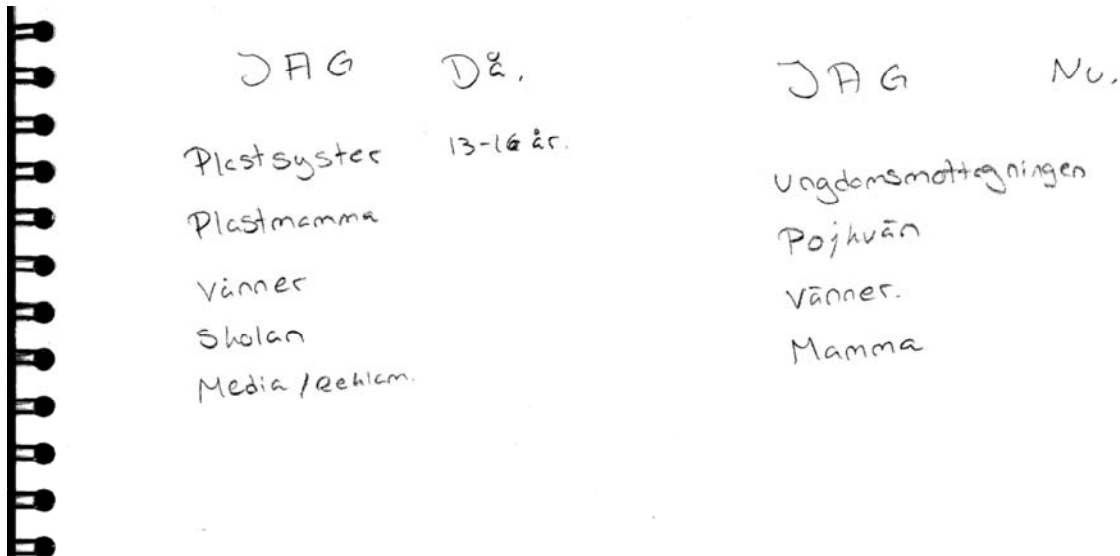 JAG Då.
13-16 år.
Plastsyster
Plastmamma
Vänner
Skolan
Media / Reklam.
JAG Nu.
Ungdomsmottagningen
Pojkvän
Vänner.
Mamma